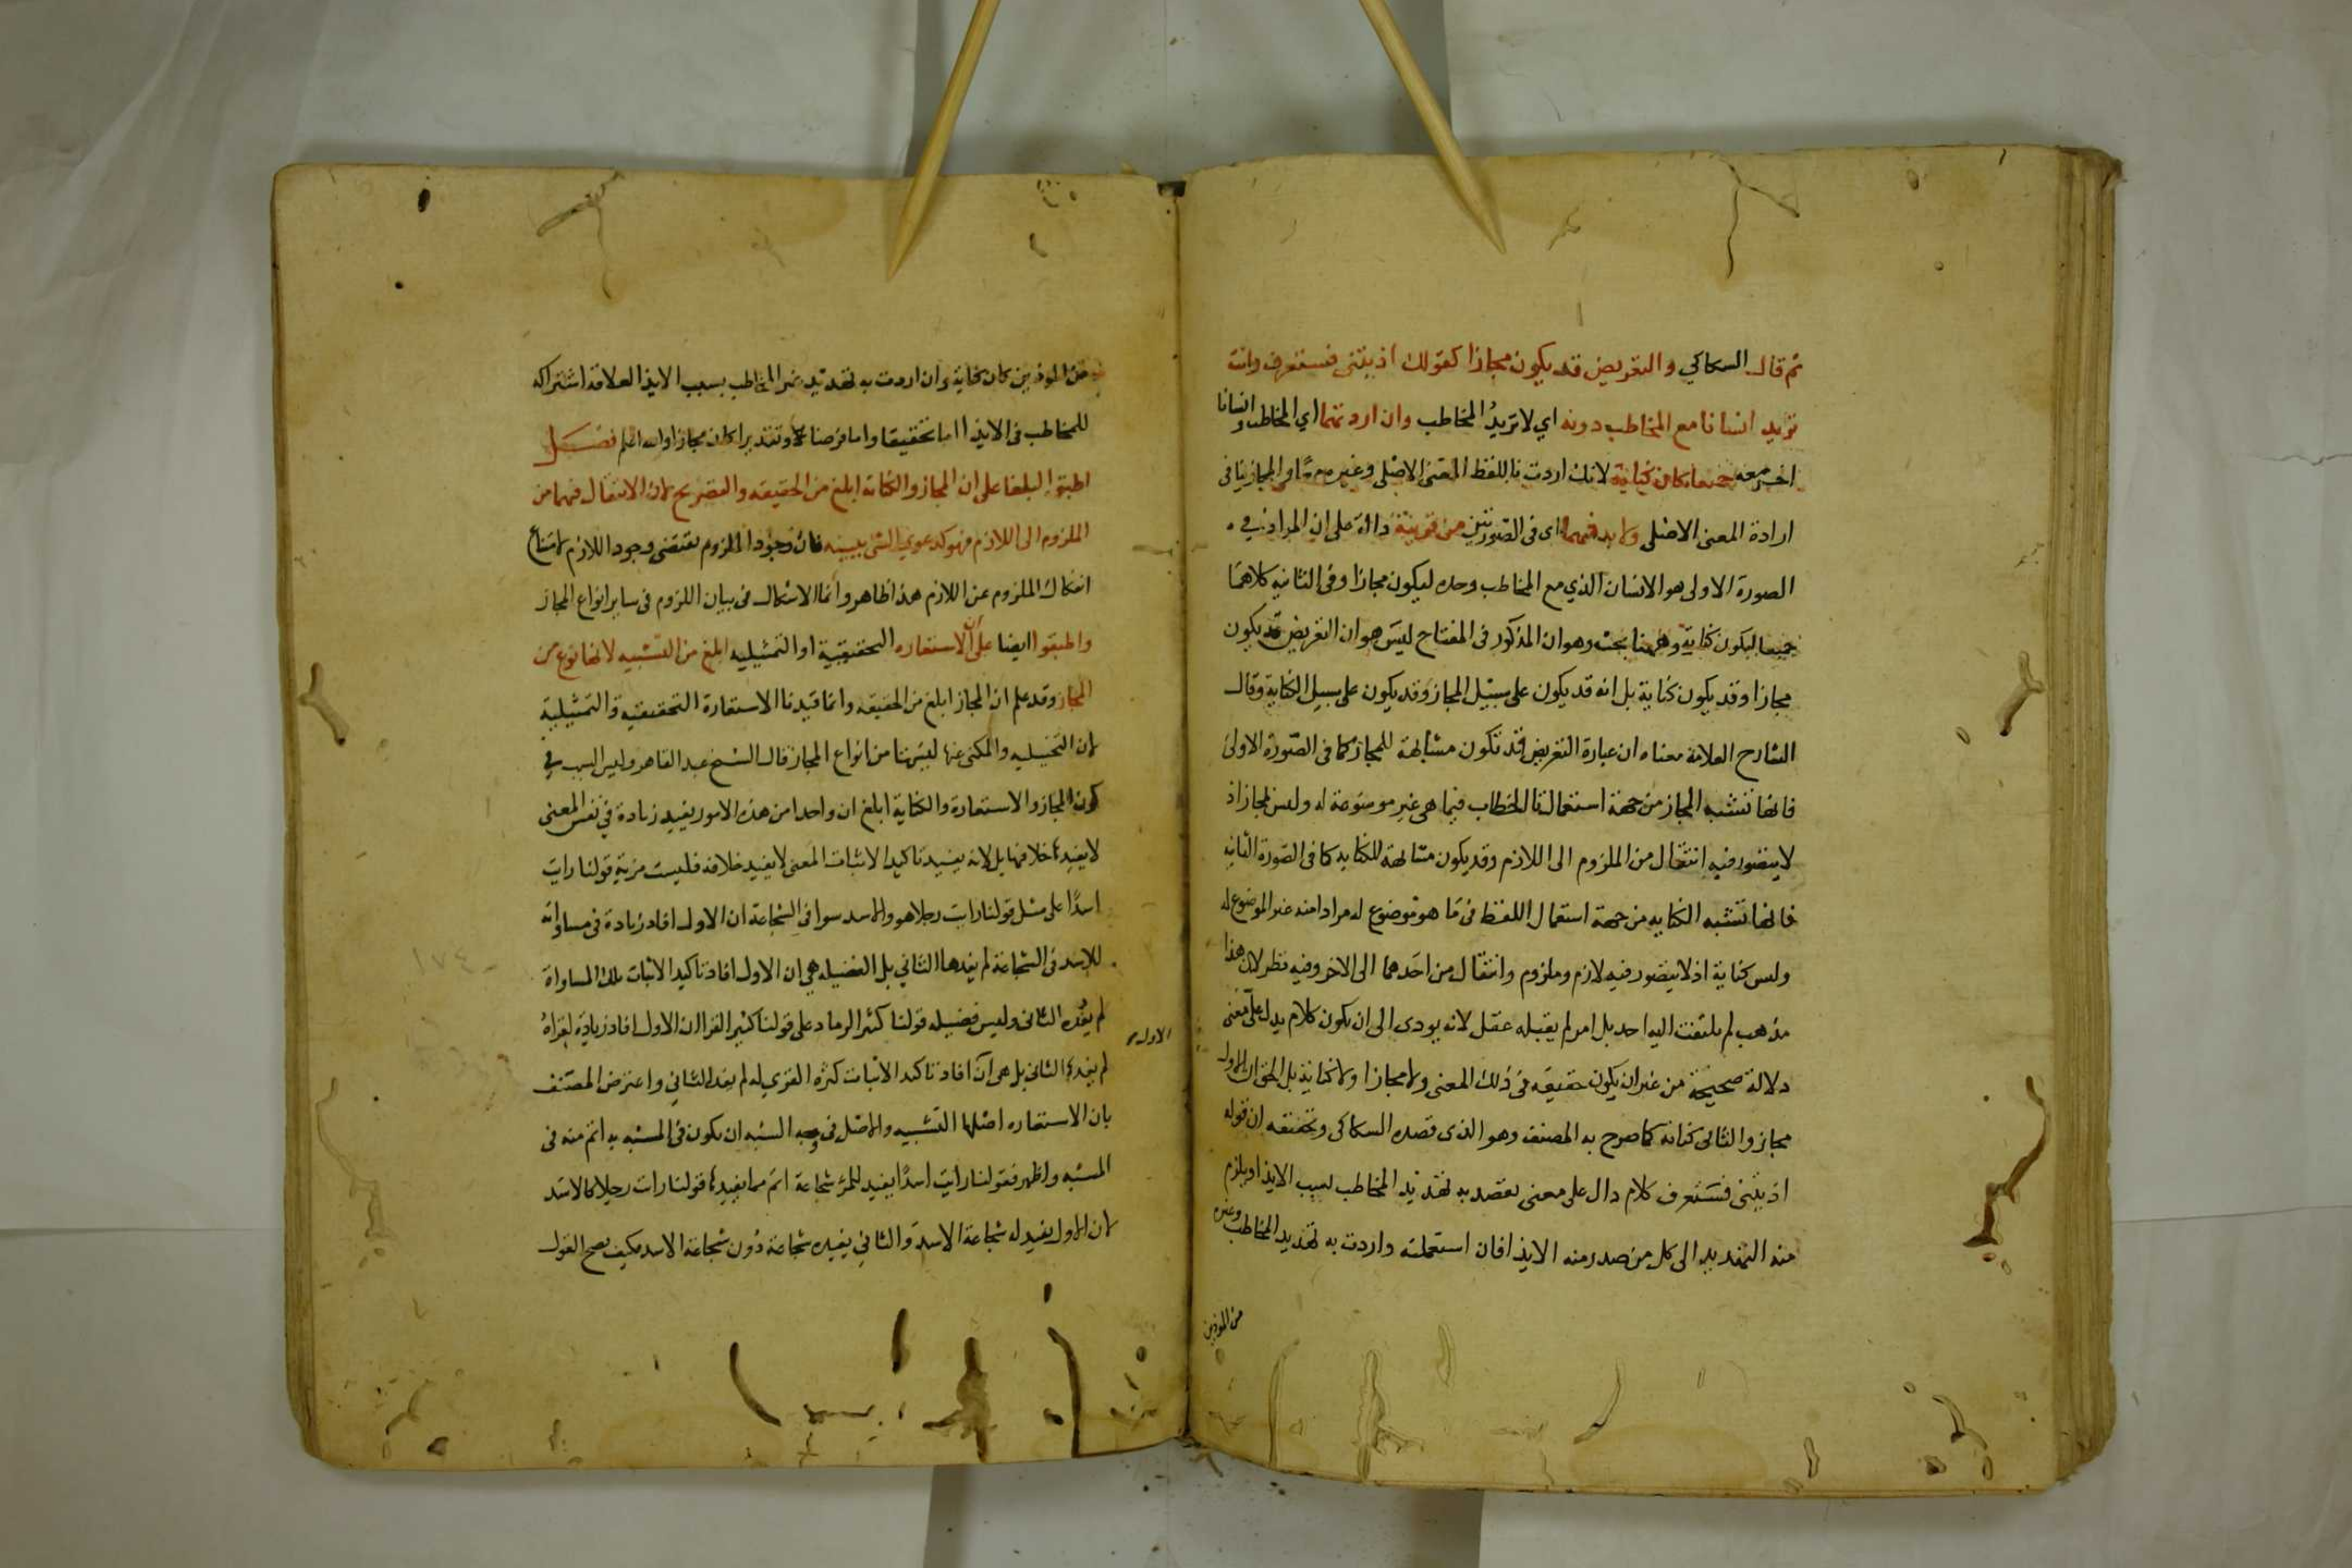 ثم قال السكاكي والتعريض قد يكون مجازا كقولك اذيتني فستعرف وانت
تريد انسانا مع المخاطب دونه اي لا تريد المخاطب وان اردتهما اي المخاطب وانسانا
اخر معه جميعا كان كناية لانك اردت باللفظ المعنى الاصلي وغيره معا والمجاز ينافي
ارادة المعنى الاصلي ولابد فيهما اي في الصورتين من قرينة دالة على ان المراد في
الصورة الاولى هو الانسان الذي مع المخاطب وحده ليكون مجازا وفي الثانية كلاهما
جميعا ليكون كناية وههنا بحث وهو ان المذكور في المفتاح ليس هو ان التعريض قد يكون
مجازا وقد يكون كناية بل انه قد يكون على سبيل المجاز وقد يكون على سبيل الكناية وقال
الشارح العلامة معناه ان عبارة التعريض قد تكون مشابهة للمجاز كما في الصورة الاولى
فانها تشبه المجاز من جهة استعمال تا الخطاب فيما هي غير موضوعة له وليس لمجاز اذ
لا يتصور فيه انتقال من الملزوم الى اللازم وقد يكون مشابهة للكناية كما في الصورة الثانية
فانها تشبه الكناية من جهة استعمال اللفظ في ما هو موضوع له مرادا منه غير الموضوع له
وليس كناية اذ لا يتصور فيه لازم وملزوم وانتقال من احدهما الى الاخر وفيه نظر لان هذا
مذهب لم يلتفت اليه احد بل امر لم يقبله عقل لانه يودى الى ان يكون كلام يدل على معنى
دلالة صحيحة من غير ان يكون حقيقة في ذلك المعنى ولا مجازا ولا كناية بل الحق ان الاول
مجاز والثاني كناية كما صرح به المصنف وهو الذى قصده السكاكى وتحقيقه ان قوله
اذيتني فستعرف كلام دال على معنى يقصد به تهديد المخاطب بسبب الايذا ويلزم
منه التهديد الى كل من صدر منه الايذا فان استعملته واردت به تهديد المخاطب وغيره
من الموذين
من الموذين كان كناية وان اردت به تهديد غير المخاطب بسبب الايذا لعلاقة اشتراكه
للمخاطب في الايذا اما تحقيقا واما فرضا وتقديرا كان مجازا والله اعلم فصل
اطبق البلغا على ان المجاز والكناية ابلغ من الحقيقة والتصريح لان الانتقال فيهما من
الملزوم الى اللازم فهو كدعوي الشي ببينه فان وجود الملزوم يقتضي وجود اللازم لامتناع
انفكاك الملزوم عن اللازم هذا ظاهر وانما الاشكال في بيان اللزوم في ساير انواع المجاز
واطبقوا ايضا على ان الاستعاره التحقيقية او التمثيليه ابلغ من التشبيه لانها نوع من
المجاز وقد علم ان المجاز ابلغ من الحقيقه وانما قيدنا الاستعارة التحقيقية والتمثيلية
لان التخييليه والمكنى عنها ليستا من انواع المجاز قال الشيخ عبد القاهر وليس السبب في
كون المجاز والاستعارة والكناية ابلغ ان واحدا من هذه الامور يفيد زيادة في نفس المعنى
لا يفيدها خلافها بل لانه يفيد تاكيدا لاثبات المعنى لا يفيد خلافه فليست مزية قولنا رايت
اسدًا على مثل قولنا رايت رجلا هو والاسد سوا في الشجاعة ان الاول افاد زيادة في مساواته
للاسد في الشجاعة لم يفدها الثاني بل الفضيله هي ان الاول افاد تاكيد الاثبات تلك المساواة
لم يفده الثاني وليس فضيله قولنا كثير الرماد على قولنا كثير القرا ان الاول افاد زيادة لقراه
الاول
لم يفدها الثاني بل هي ان افاد تاكيد الاثبات كثرة القرى له لم يفده الثاني واعترض المصنف
بان الاستعاره اصلها التشبيه والاصل في وجه الشبه ان يكون في المشبه به اتم منه في
المشبه واظهر فقولنا رايت اسدًا يفيد للمرء شجاعة اتم مما يفيدها قولنا رايت رجلا كالاسد
لان الاول يفيد له شجاعة الاسد والثاني يفيده شجاعة دون شجاعة الاسد فكيف يصح القول
١٧٤